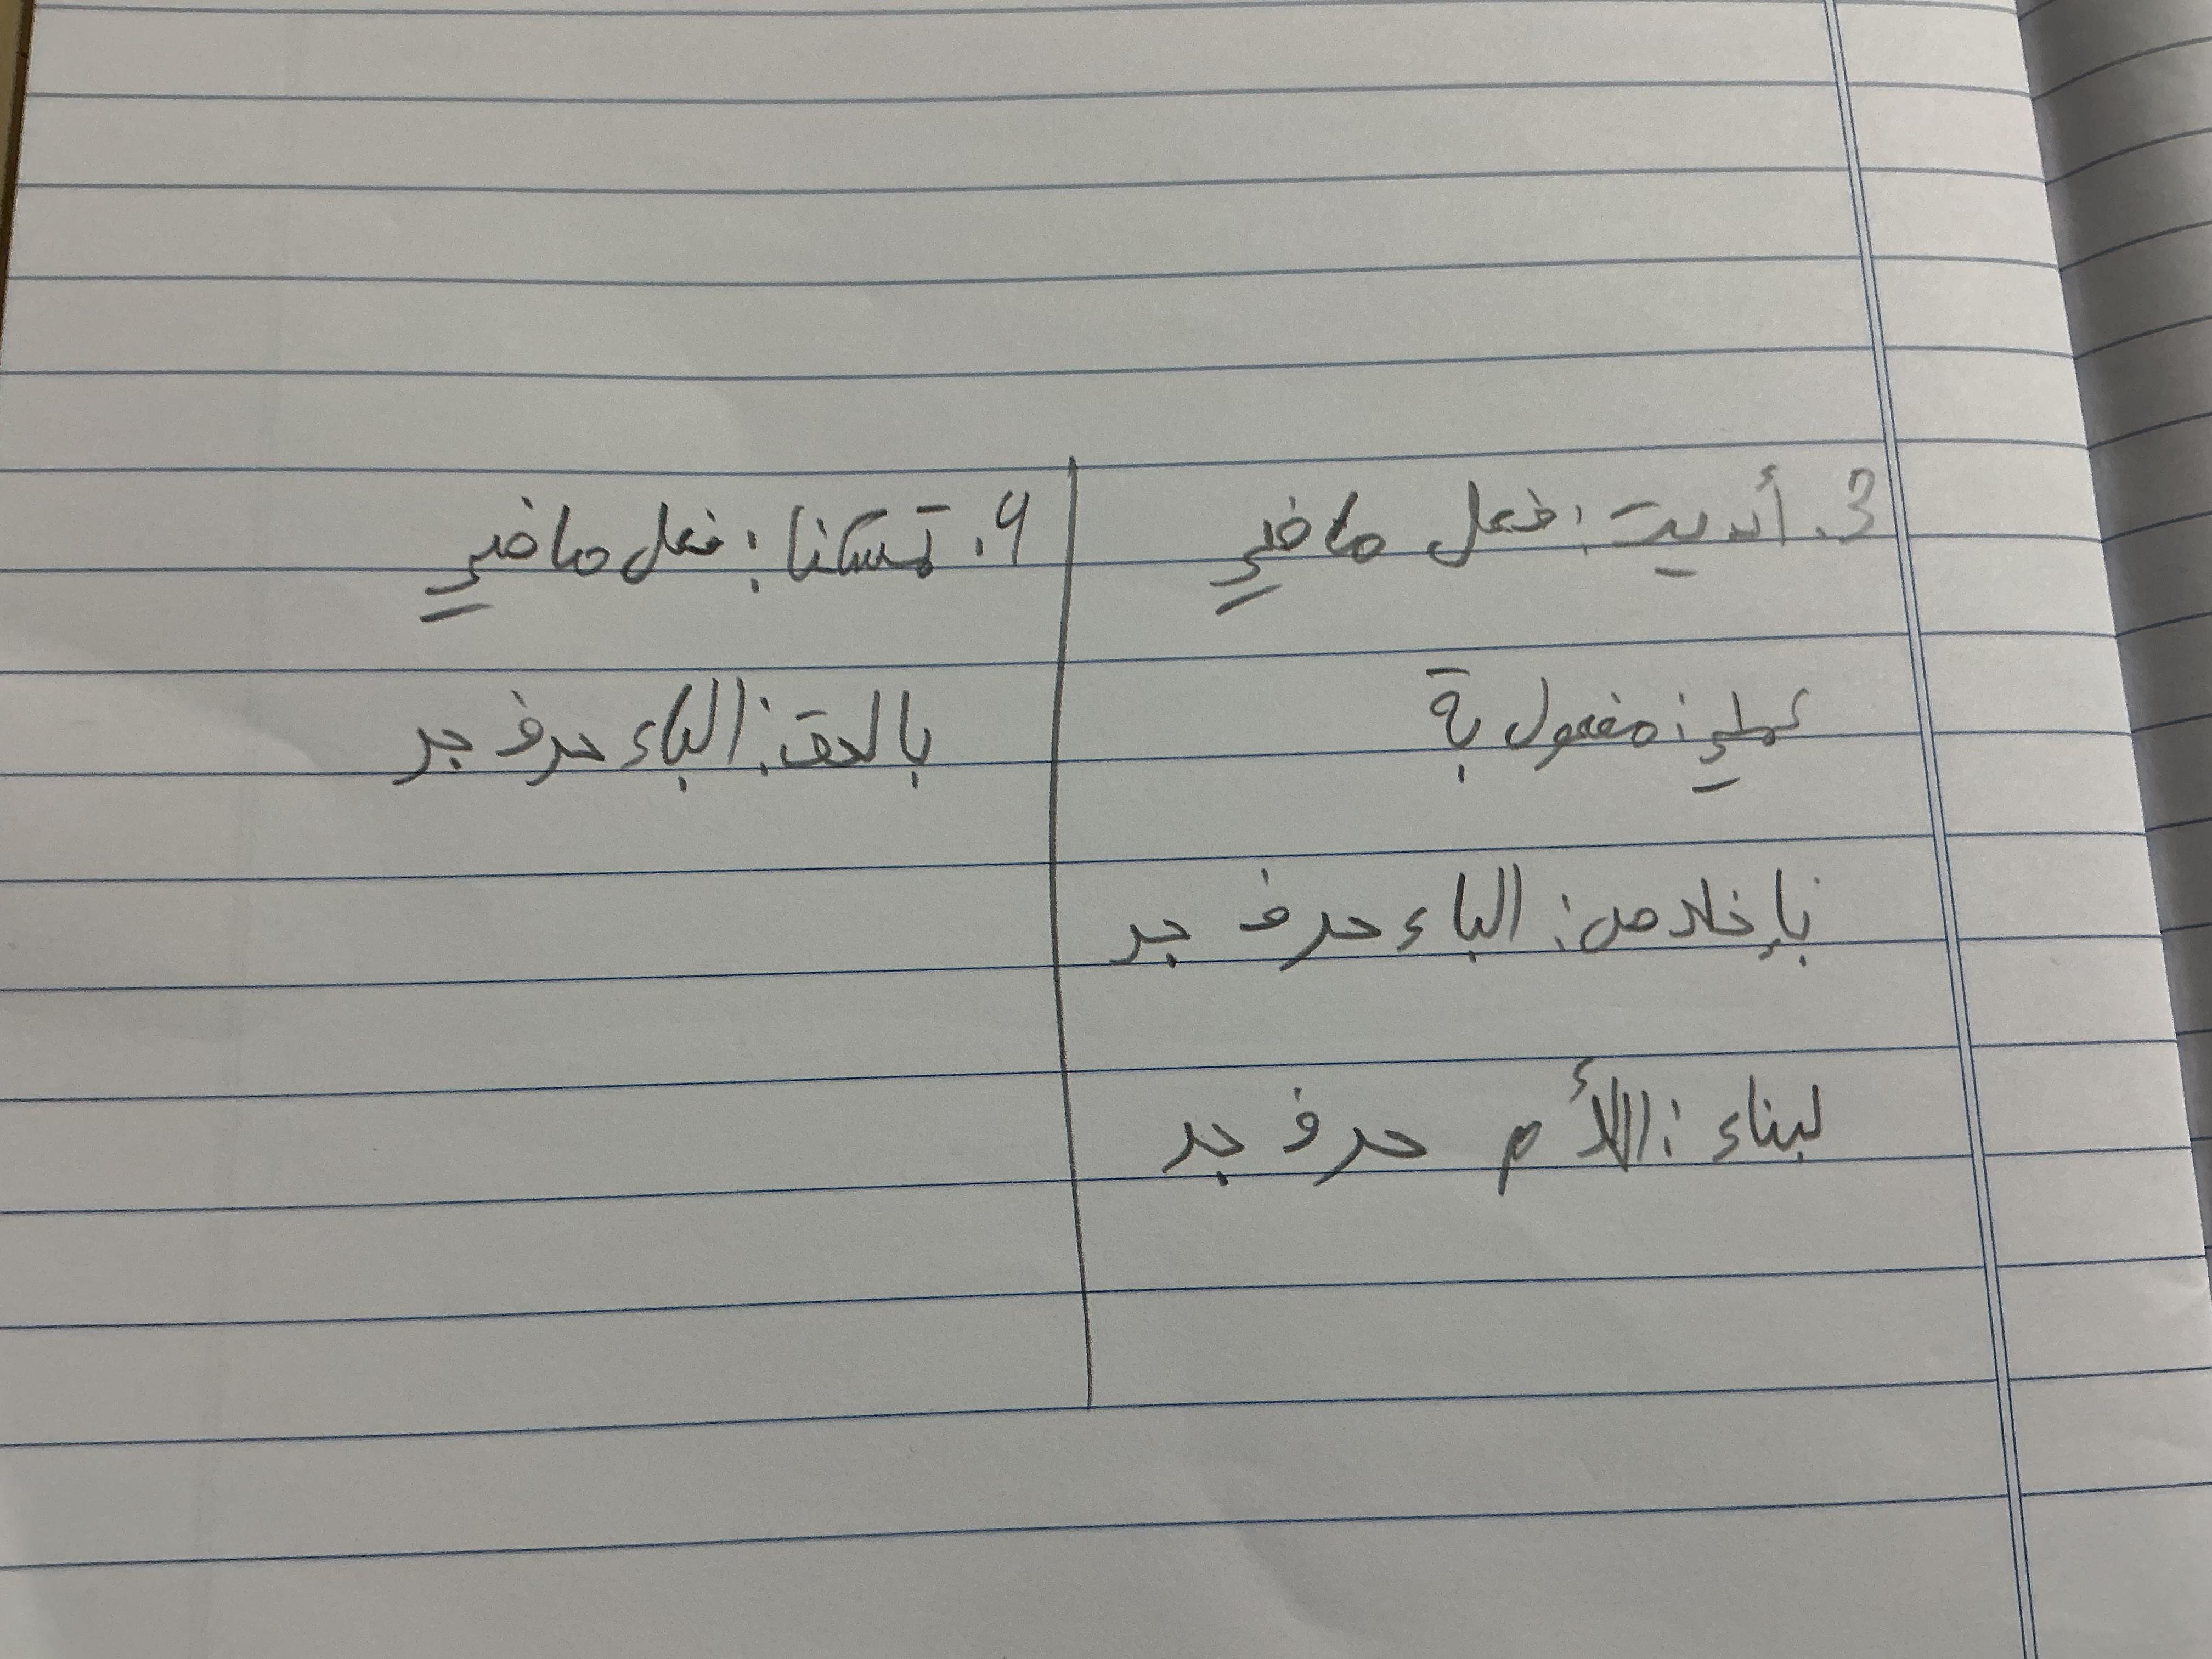 3. أديت: فعل ماضي
عملي: مفعول بة
بإخلاص: الباء حرف جر
لبناء: اللأم حرف جر
4. تمسكنا: فعل ماضي
بالحق: الباء حرف جر